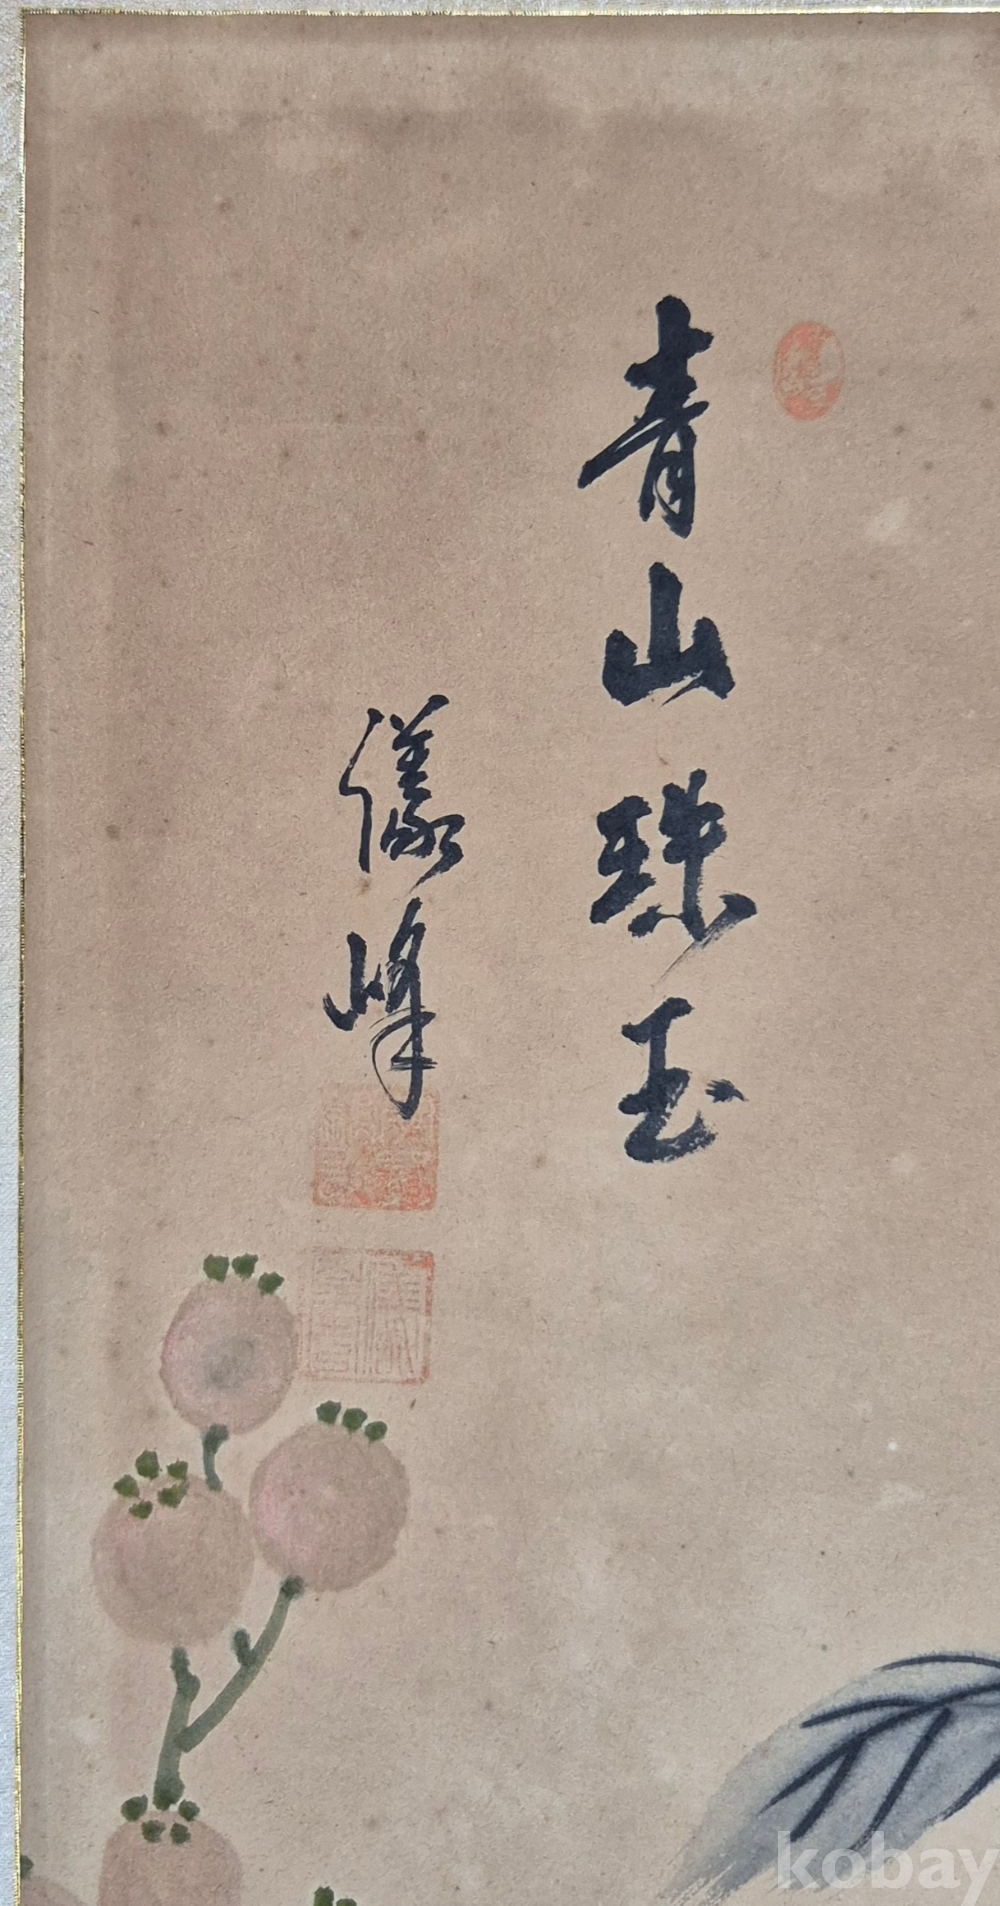 青山珠玉
儀峰
kobay